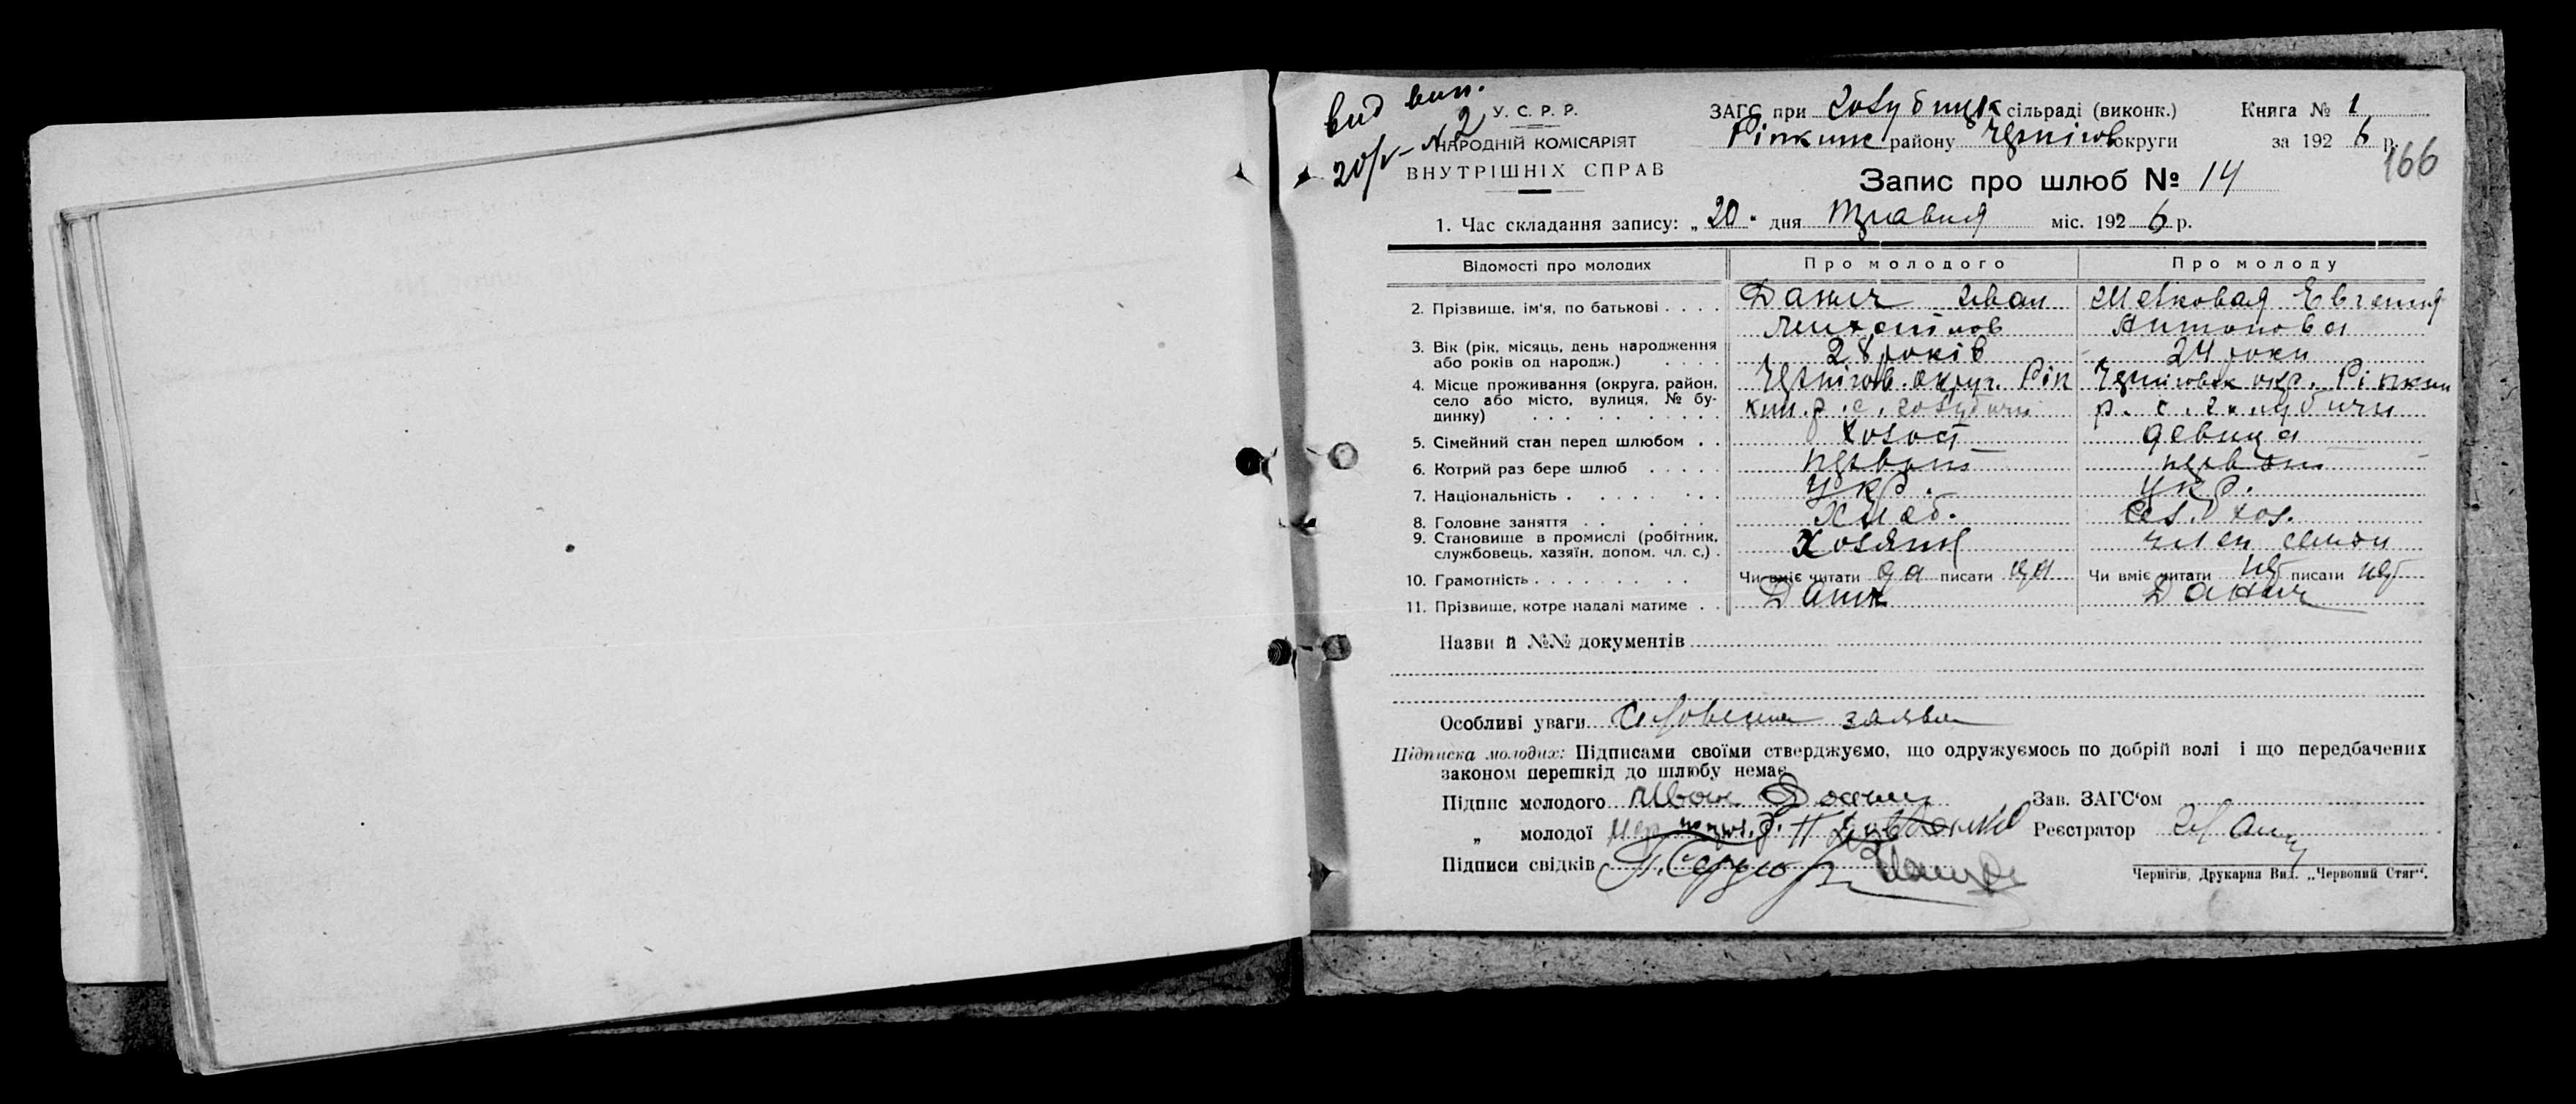 вид вип.
20/V – №2
У. С. Р. Р.
НАРОДНІЙ КОМІСАРІЯТ
ВНУТРІШНІХ СПРАВ
ЗАГС при Голубицьк сільраді (виконк.) Книга № 1
Ріпкинс району Чернігов округи за 192 6 р.
166
Запис про шлюб № 14
1. Час складання запису: „ 20 " дня Травня міс. 192 6 р.
Відомості про молодих Про молодого Про молоду
2. Прізвище, ім'я, по батькові . . . . Данич Иван Евгения
Михайлов Антонова
3. Вік (рік, місяць, день народження або років од народж.) . . . . 28 років 24 роки
4. Місце проживання (округа, район, село або місто, вулиця, № будинку) . . . . . . . . . . Чернігов. округ. Ріп Черниговск окр. Ріпкин
кин. р. с. Голубичи р. с. Голубичи
5. Сімейний стан перед шлюбом . . Холост девица
6. Котрий раз бере шлюб . . . . . первый первый
7. Національність . . . . . . . . Укр. Укр.
8. Головне заняття . . . . . Хлеб. Сел. хоз.
9. Становище в промислі (робітник, службовець, хазяїн, допом. чл. с.) . Хозяин член семьи
10. Грамотність . . . . . . . . . Чи вміє читати да писати да Чи вміє читати нет писати нет
11. Прізвище, котре надалі матиме . . Данич Данич
Назви й №№ документів
Особливі уваги Словесна заява
Підписка молодих: Підписами своїми стверджуємо, що одружуємось по добрій волі і що передбачених
законом перешкід до шлюбу немає
Підпис молодого Иван Данич Зав. ЗАГС'ом
„ молодої Реєстратор
Підписи свідків
Чернігів, Друкарня Вид. „Червоний Стяг".